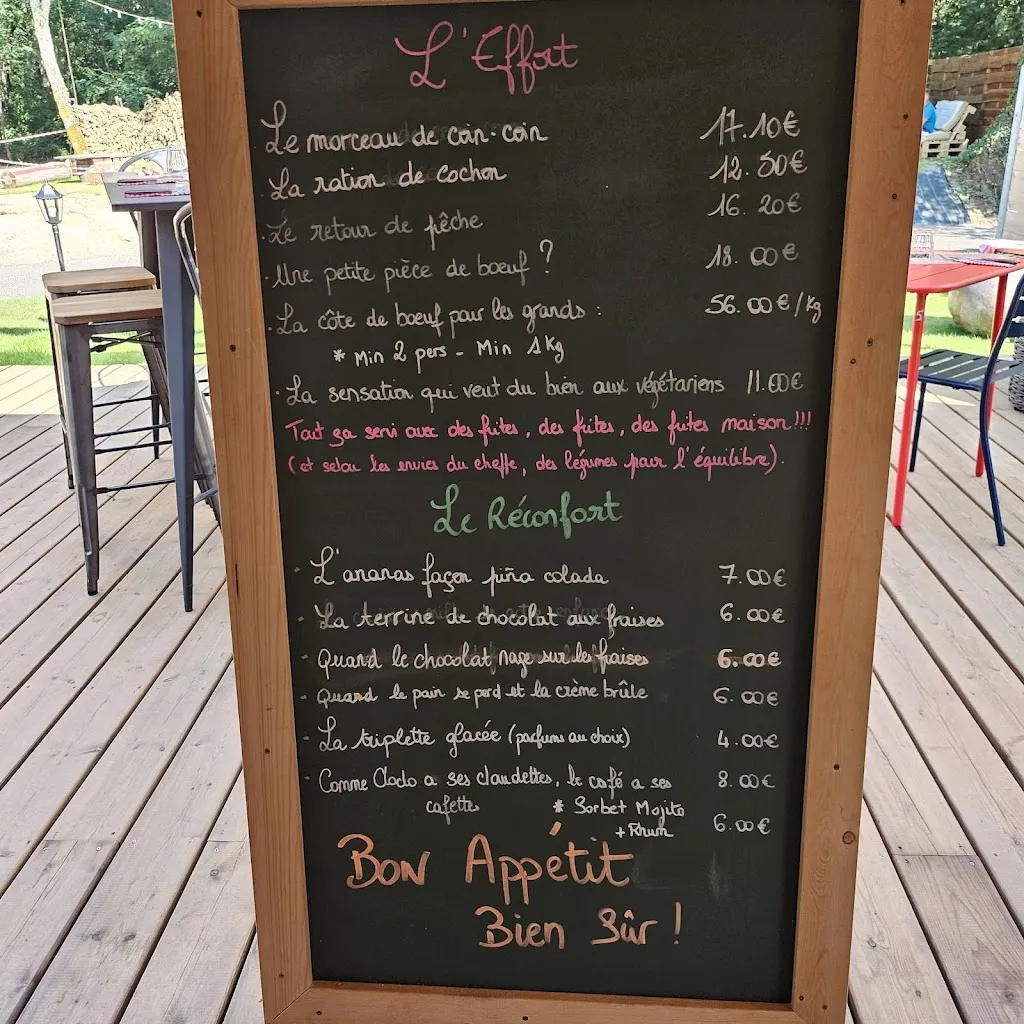 L'Effort
Le morceau de coin-coin 17.10€
La ration de cochon 12.50€
Le retour de pêche 16.20€
Une petite pièce de boeuf ? 18.00€
La côte de boeuf pour les grands : 56.00€/kg
* Min 2 pers - Min 1kg
La sensation qui veut du bien aux végétariens 11.00€
Tout ça servi avec des frites, des frites, des frites maison !!!
(et selon les envies du cheffe, des légumes pour l'équilibre).
Le Réconfort
L'ananas façon piña colada 7.00€
La terrine de chocolat aux fraises 6.00€
Quand le chocolat nage sur les fraises 6.00€
Quand le pain se perd et la crème brûle 6.00€
La triplette glacée (parfums au choix) 4.00€
Comme Cloclo a ses claudettes, le café a ses 8.00€
cafettes * Sorbet Mojito
+ Rhum 6.00€
Bon Appétit
Bien Sûr !